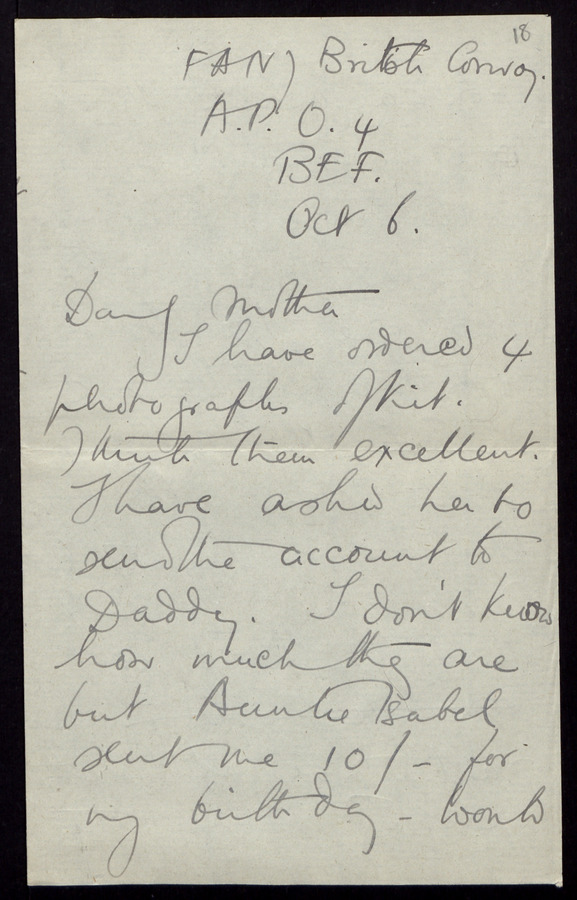 18
FANY British Convoy.
A.P.O. 4
BEF.
Oct 6.
Darling Mother
I have ordered 4
photographs of Kit.
I think them excellent.
I have asked her to
send the account to
Daddy. I don't know
how much they are
but Auntie Isabel
sent me 10/- for
my birthday - would